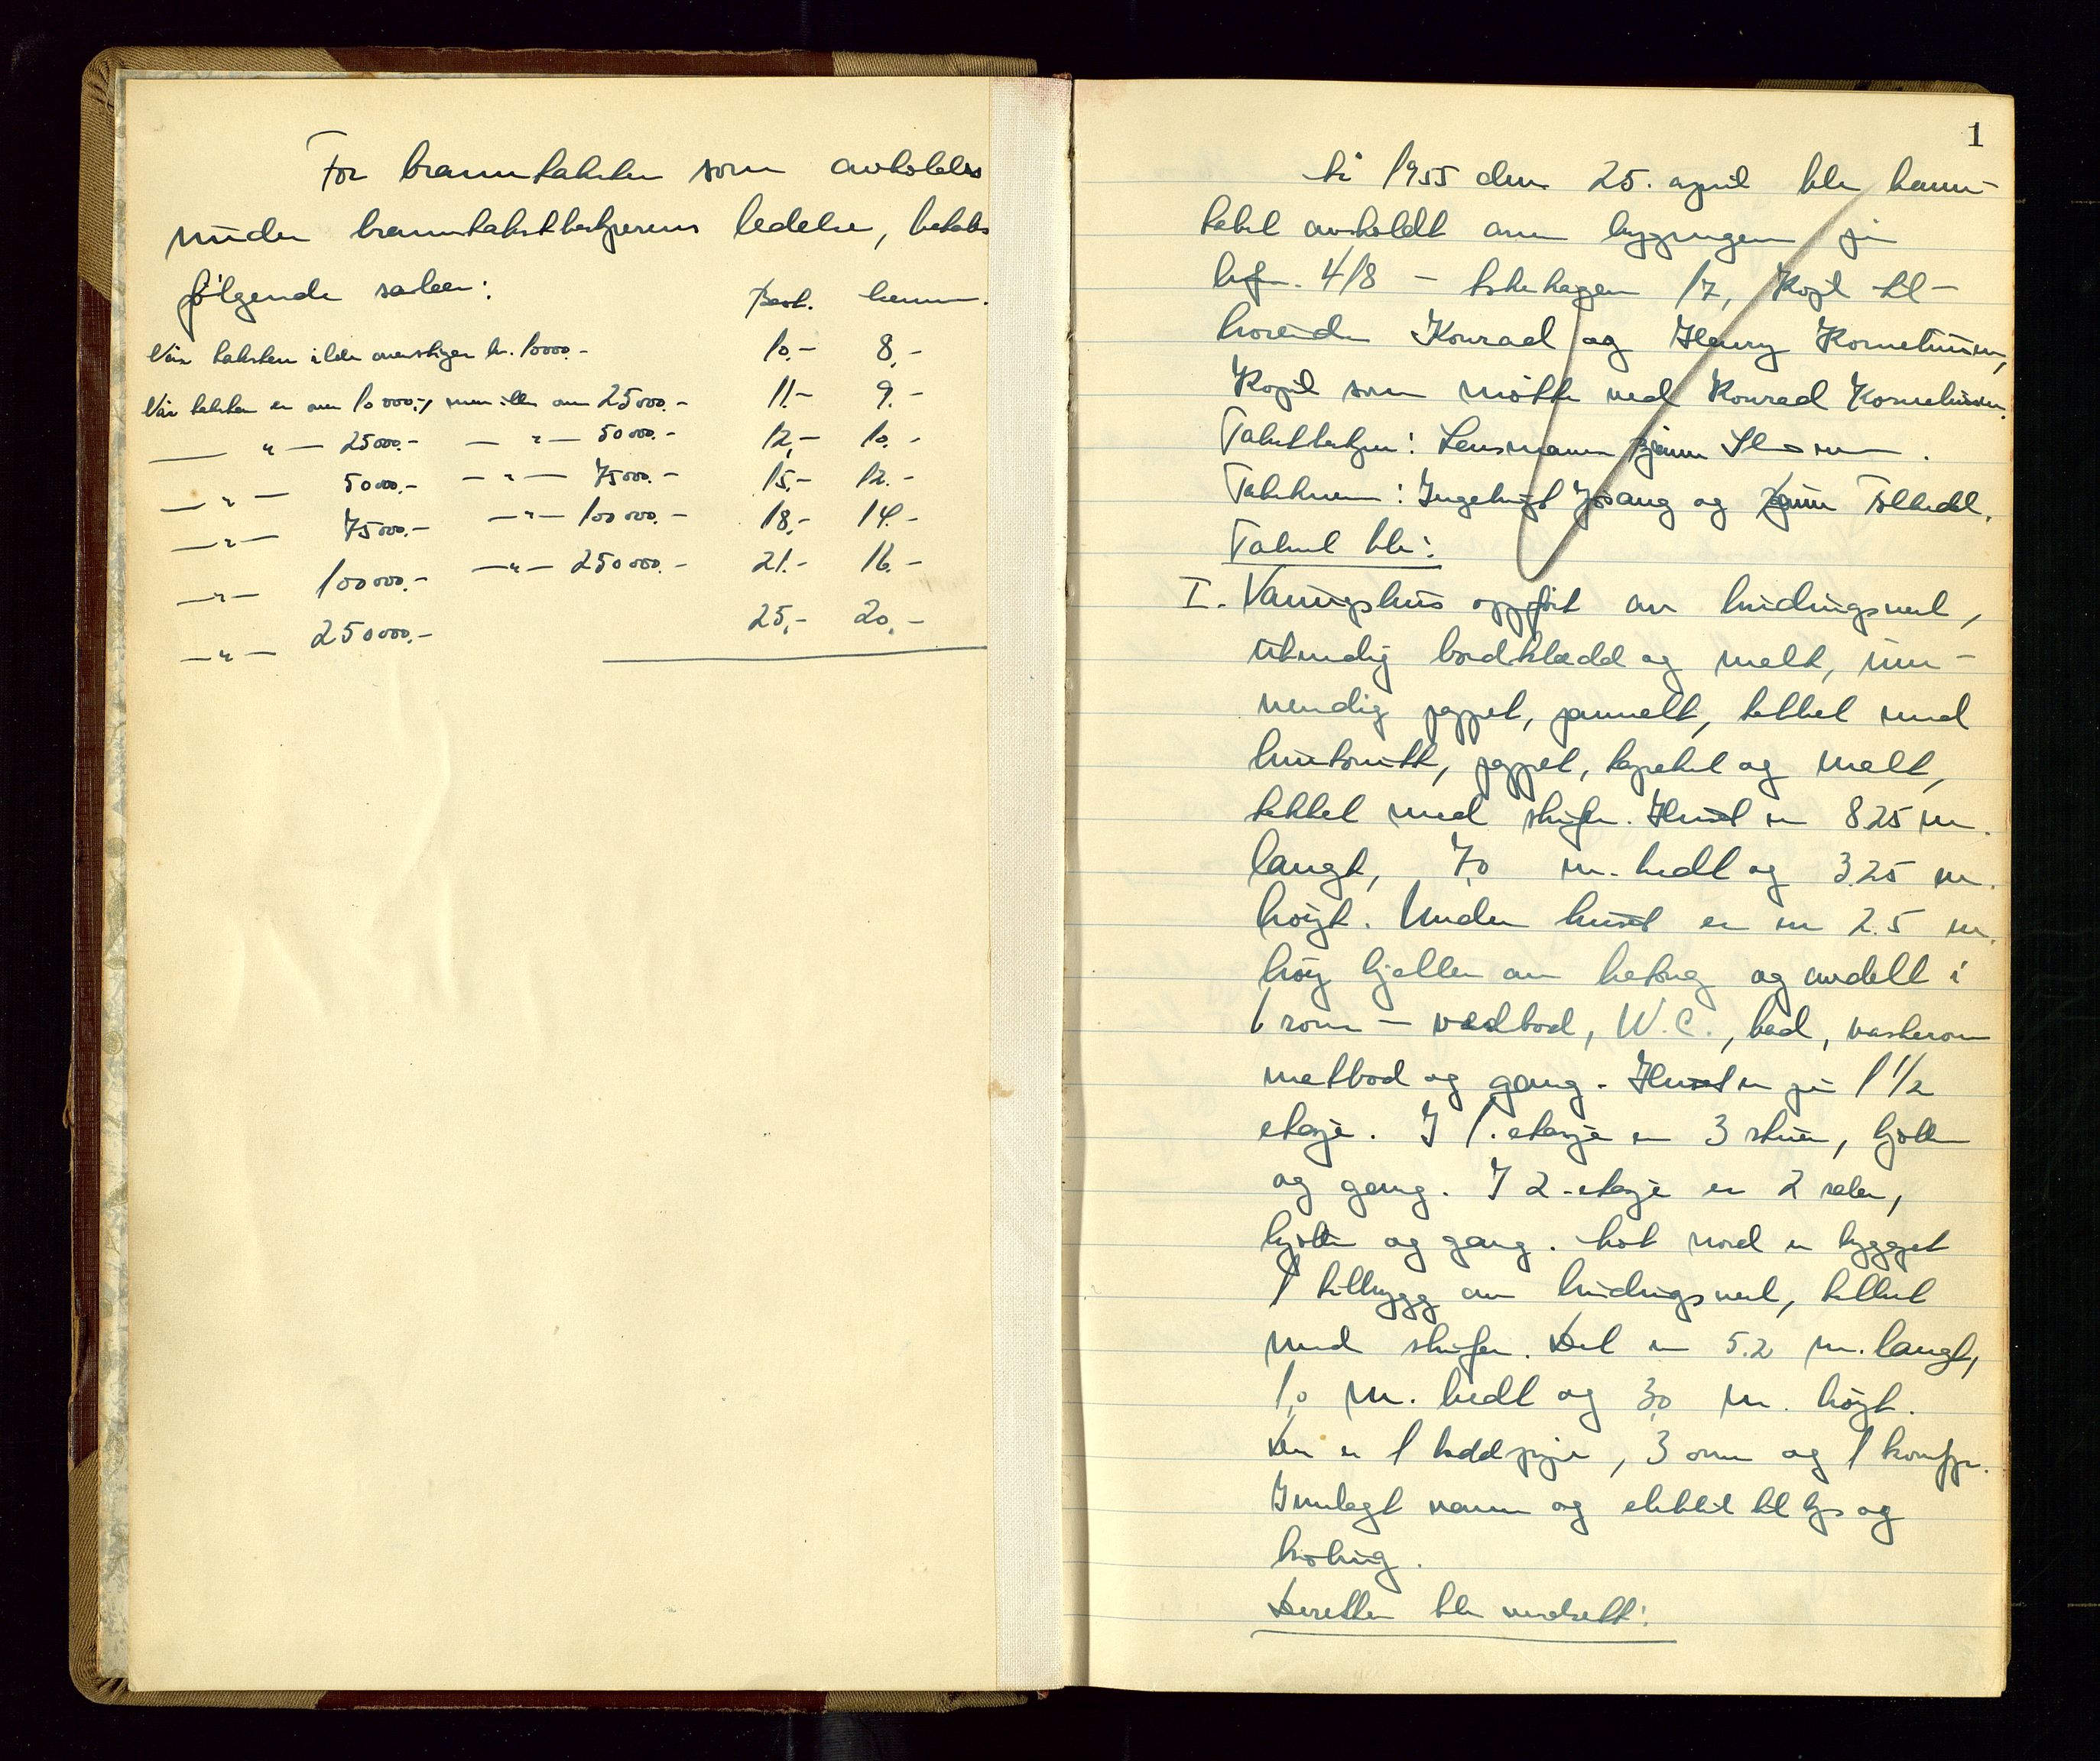 For branntakster som avholdes
under branntakstbestyrerens ledelse, betales
følgende satser:
Best. Menn.
Når taksten ikke overstiger kr. 10000.- 10.- 8.-
Når taksten er over 10000.-, men ikke over 25000.- 11.- 9.-
— " — 25000.- — " — 50000.- 12.- 10.-
— " — 50000.- — " — 75000.- 15.- 12.-
— " — 75000.- — " — 100000.- 18.- 14.-
— " — 100000.- — " — 250000.- 21.- 16.-
— " — 250000.- 25.- 20.-
1
År 1955 den 25. april ble brann-
takst avholdt over bygningen på
br.nr. 4/8 - 17, Kopil til-
hørende Konrad og Henry Korneliussen,
Kopil som møtte ved Konrad Korneliussen.
Takstbestyrer: Lensmann Bjarne
Takstmenn: Ingebrigt Jøsang og
Takst ble:
I. Våningshus oppført av bindingsverk,
utvendig bordklædd og malt, inn-
vendig pappet, pannelt, tekket med
huntonitt, pappet, tapetsert og malt,
tekket med skifer. Huset er 8.25 m.
langt, 7,0 m. bredt og 3.25 m.
høyt. Under huset er en 2.5 m.
høy kjeller av betong og avdelt i
6 rom - vedbod, W.C., bad, vaskerom
matbod og gang. Huset er på 1 1/2
etasje. I 1. etasje er 3 stuer, kjøkken
og gang. I 2. etasje er 2 saler,
kjøkken og gang. Mot nord er bygget
1 tilbygg av bindingsverk, tekket
med skifer. Det er 5.2 m. langt,
1,0 m. bredt og 3,0 m. høyt.
Der er 1 teglpipe, 3 ovner og 1 komfyr.
Innlagt vann og elektrisitet til lys og
koking.
Deretter ble verdsatt: